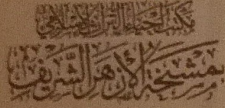 مكتب إحياء التراث الإسلامي
بمشيخة الأزهر الشريف